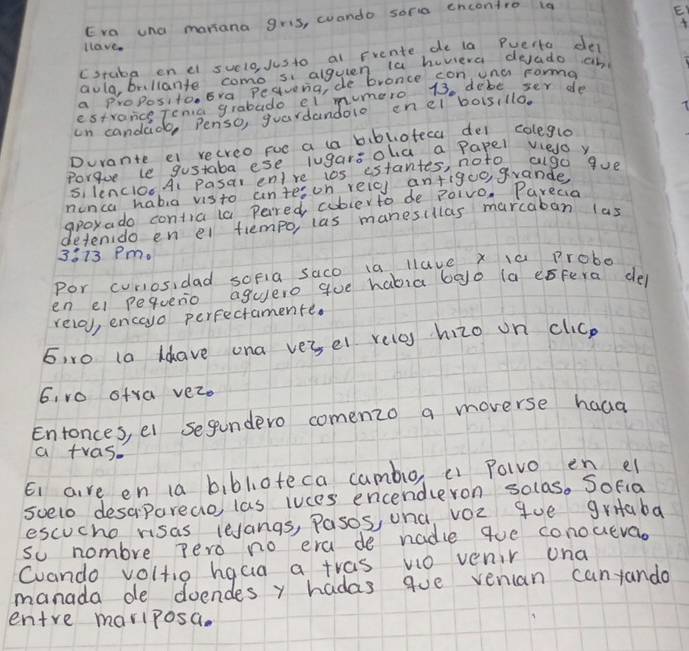 Era una mañana gris, cuando sofia encontro la
llave.
Estaba en el suelo, justo al frente de la puerta del
aula, brillante como si alguien la huviera dejado ahi
a proposito. Era pequeña, de bronce con una forma
estrance Tenia grabado el numero 13. debe ser de
un candado, Penso, guardandolo en el bolsillo.
Durante el recreo fue a la biblioteca del colegio
Porque le gustaba ese lugar: olia a Papel viejo y
silencio. Al pasar entre los estantes, noto algo que
nunca habia visto antes: un reloj antiguo, grande,
apoyado contra la Pared, cubierto de Polvo. Parecia
detenido en el tiempo, las manesillas marcaban las
3:13 Pm.
Por curiosidad sofia saco la llave y la probo
en el pequeño agujero que habia bajo la esfera del
reloj, encajo perfectamente.
Giro la llave una vez, el reloj hizo un clic.
Giro otra vez.
Entonces, el segundero comenzo a moverse hacia
a tras.
El aire en la biblioteca cambio, el Polvo en el
suelo desaparecio, las luces encendieron solas. Sofia
escucho risas lejanas, Pasos, una voz que gritaba
su nombre Pero no era de nadie que conocieva.
Cuando voltio hacia a tras vio venir una
manada de duendes y hadas que venian cantando
entre mariposa.